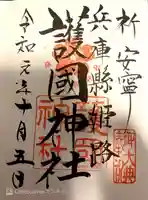 祈安寧
兵庫縣姫路
護國神社
令和元年十月五日